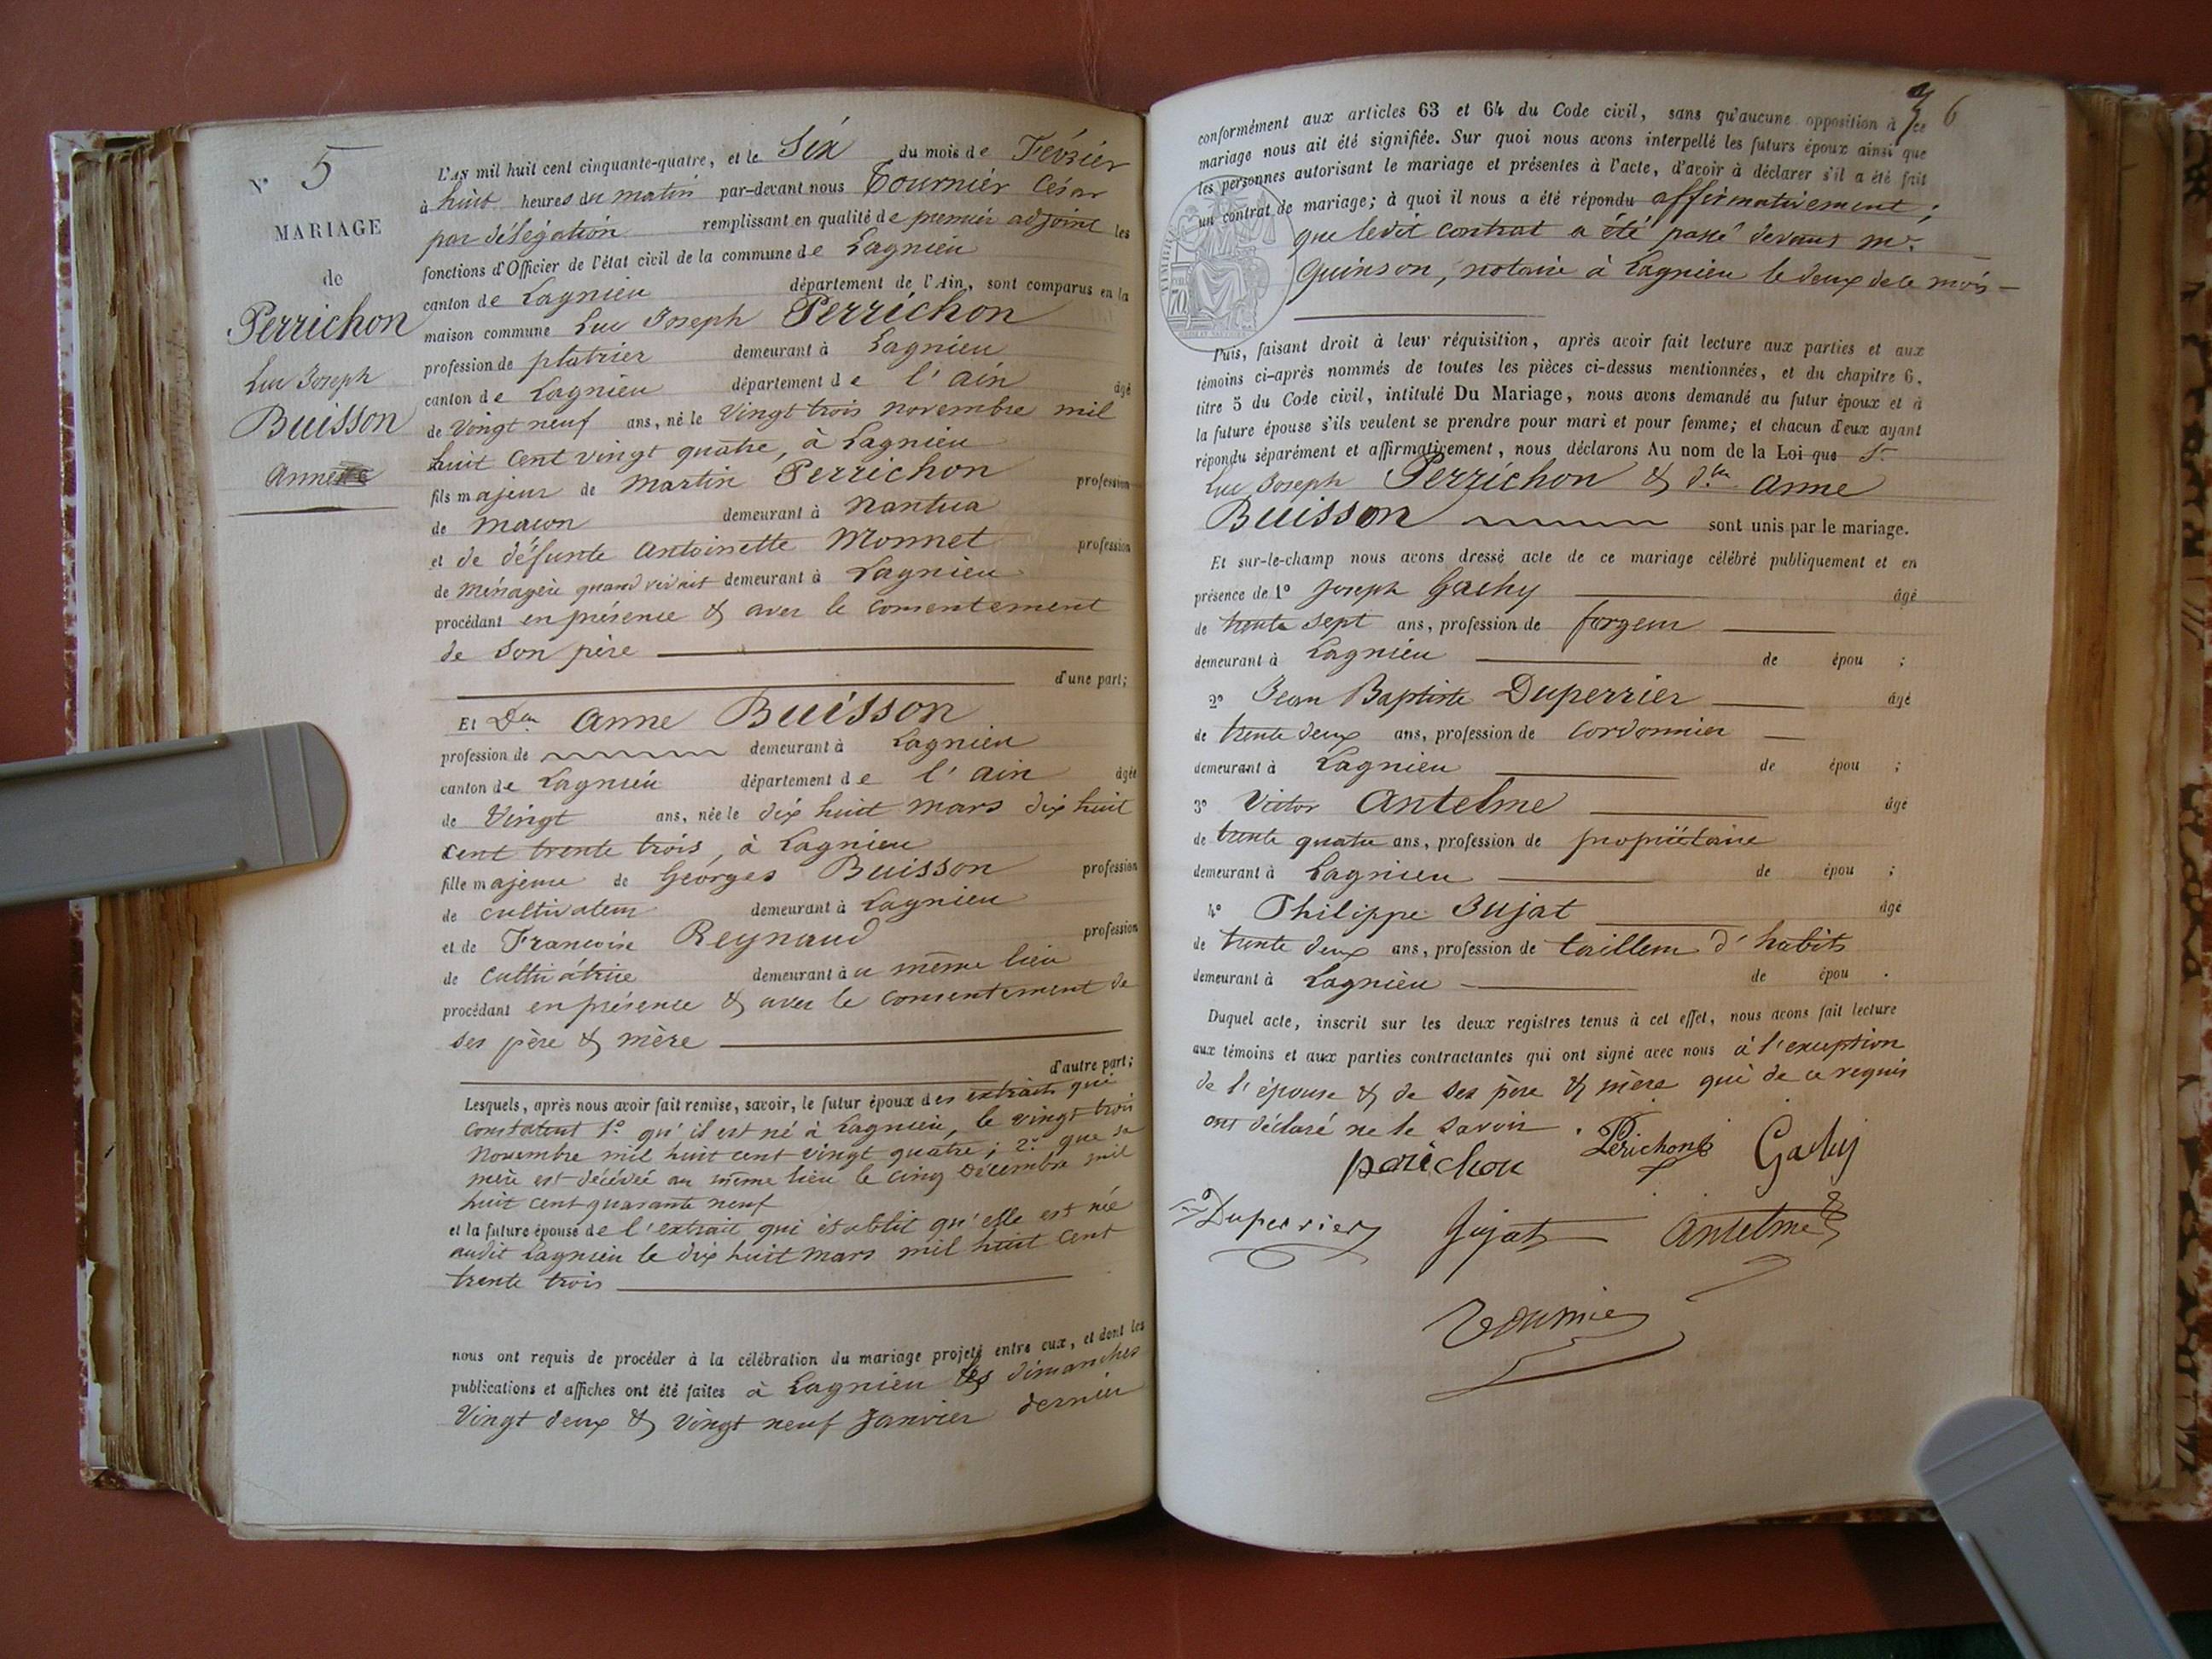 N° 5
MARIAGE
de
Perrichon
Luc Joseph
Buisson
Anne
L'AN mil huit cent cinquante-quatre, et le Six du mois de Février
à huit heures du matin par-devant nous Tournier César
par délégation remplissant en qualité de premier adjoint les
fonctions d'Officier de l'état civil de la commune de Lagnieu
canton de Lagnieu département de l'Ain, sont comparus en la
maison commune Luc Joseph Perrichon
profession de platrier demeurant à Lagnieu
canton de Lagnieu département de l'ain âgé
de Vingt neuf ans, né le Vingt trois novembre mil
huit cent vingt quatre, à Lagnieu
fils majeur de Martin Perrichon profession
de macon demeurant à Nantua
et de défunte Antoinette Monnet profession
de Ménagère quand vivait demeurant à Lagnieu
procédant en présence & avec le consentement
de son père
d'une part;
Et Dlle Anne Buisson
profession de demeurant à Lagnieu
canton de Lagnieu département de l'ain âgée
de Vingt ans, née le dix huit mars dix huit
cent trente trois, à Lagnieu
fille majeure de Georges Buisson profession
de cultivateur demeurant à Lagnieu
et de Francoise Reynaud profession
de cultivatrice demeurant au même lieu
procédant en présence & avec le consentement de
ses père & mère
d'autre part;
Lesquels, après nous avoir fait remise, savoir, le futur époux des extraits qui
constatent 1° qu'il est né à Lagnieu, le vingt trois
Novembre mil huit cent vingt quatre; 2° que sa
mère est décédée au même lieu le cinq Décembre mil
huit cent quarante neuf
et la future épouse de l'extrait qui établit qu'elle est née
audit Lagnieu le dix huit mars mil huit cent
trente trois
nous ont requis de procéder à la célébration du mariage projeté entre eux, et dont les
publications et affiches ont été faites à Lagnieu les dimanches
Vingt deux & vingt neuf Janvier dernier
6
conformément aux articles 63 et 64 du Code civil, sans qu'aucune opposition à ce
mariage nous ait été signifiée. Sur quoi nous avons interpellé les futurs époux ainsi que
les personnes autorisant le mariage et présentes à l'acte, d'avoir à déclarer s'il a été fait
un contrat de mariage; à quoi il nous a été répondu affirmativement;
que ledit contrat a été passé devant Mr
Quinson, notaire à Lagnieu le deux de ce mois
TIMBRE
70
Puis, faisant droit à leur réquisition, après avoir fait lecture aux parties et aux
témoins ci-après nommés de toutes les pièces ci-dessus mentionnées, et du chapitre 6,
titre 5 du Code civil, intitulé Du Mariage, nous avons demandé au futur époux et à
la future épouse s'ils veulent se prendre pour mari et pour femme; et chacun d'eux ayant
répondu séparément et affirmativement, nous déclarons Au nom de la Loi que Sr
Luc Joseph Perrichon & Dlle Anne
Buisson sont unis par le mariage.
Et sur-le-champ nous avons dressé acte de ce mariage célébré publiquement et en
présence de 1° Joseph Gachy âgé
de trente sept ans, profession de forgeur
demeurant à Lagnieu de épou ;
2° Jean Baptiste Duperrier âgé
de trente deux ans, profession de cordonnier
demeurant à Lagnieu de épou ;
3° Victor Antelme âgé
de trente quatre ans, profession de propriétaire
demeurant à Lagnieu de épou ;
4° Philippe Jujat âgé
de trente deux ans, profession de tailleur d'habits
demeurant à Lagnieu de épou .
Duquel acte, inscrit sur les deux registres tenus à cet effet, nous avons fait lecture
aux témoins et aux parties contractantes qui ont signé avec nous à l'exception
de l'épouse & de ses père & mère qui de ce requis
ont déclaré ne le savoir.
perichon Perichon Gachy
Duperrier Jujat Antelme
Tournier